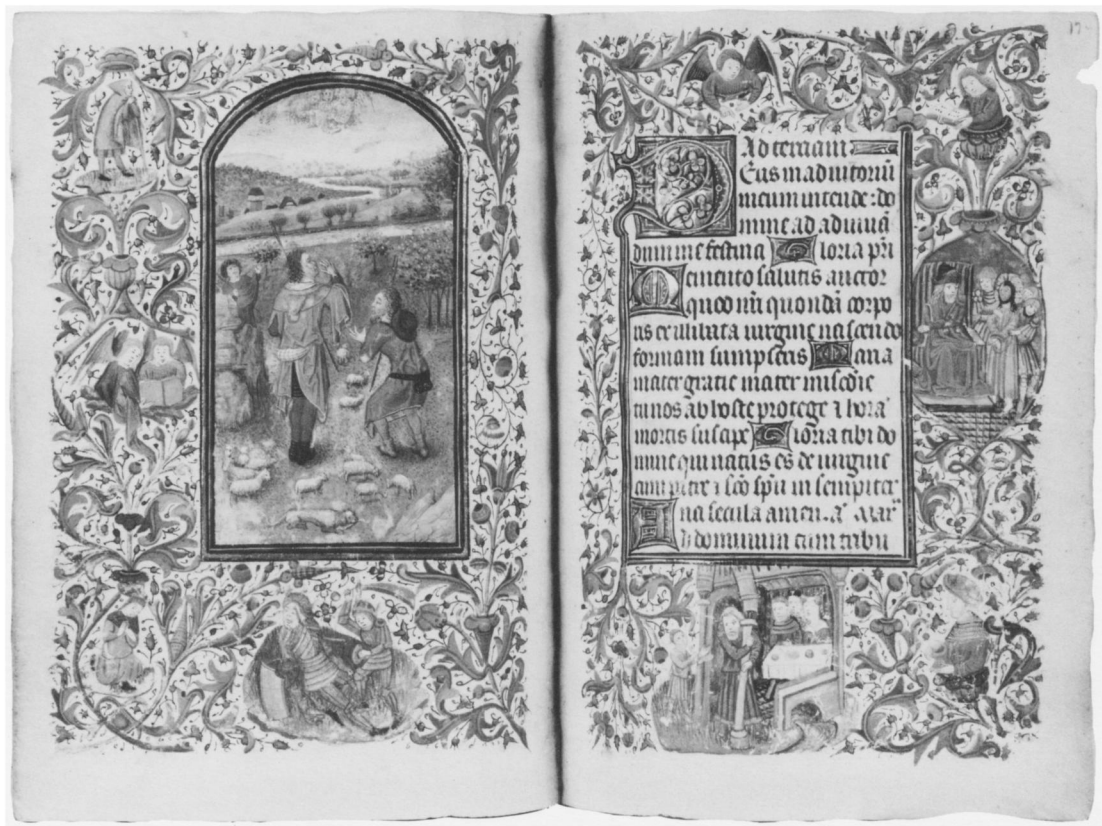 17
Ad terciam
Deus in adiutoriū
meum intende : do
mine ad adiuuā
dum me festina Gloria pr̄i
Memento salutis auctor
quod nr̄i quondā corpo
ris ex illibata uirgine nascendo
formam sumpseris Maria
mater gratie mater misc̄die
tu nos ab hoste protege ⁊ hora
mortis suscipe Gloria tibi do
mine qui natus es de uirgine
cum pat̄re ⁊ sc̄o spū in sempiter
na secula amen. a͞
Ad dominum cum tribu